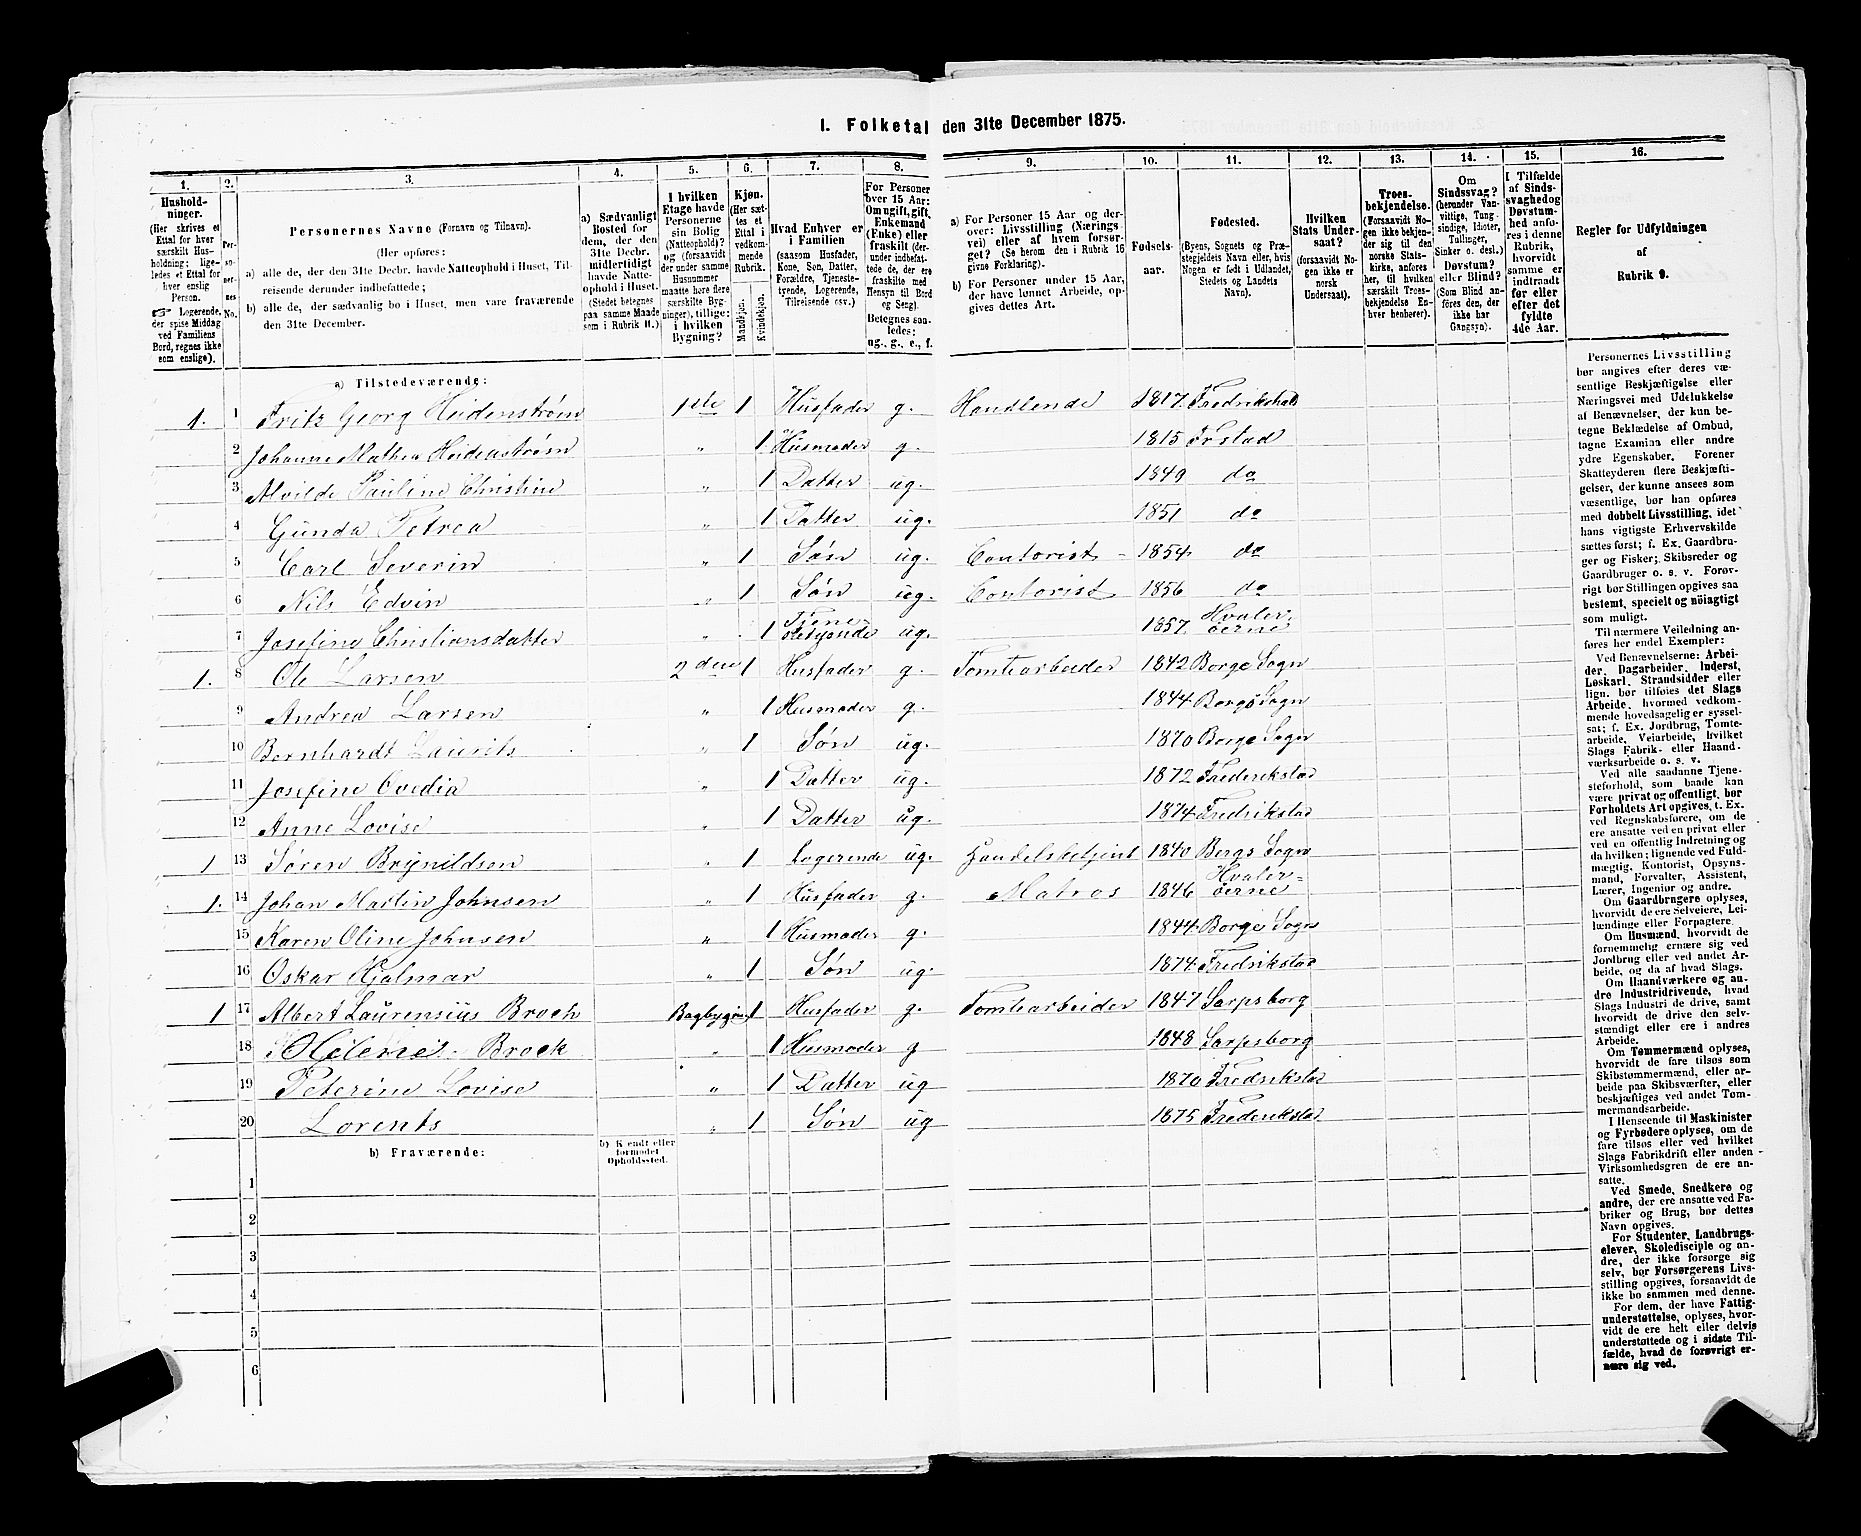 1. Folketal den 31te December 1875.
1. 2. 3. 4. 5. 6. 7. 8. 9. 10. 11. 12. 13. 14. 15. 16.
Hushold-
ninger.
(Her skrives et
Ettal for hver
særskilt Hus-
holdning; lige-
ledes et Ettal for
hver enslig
Person.
☞ Logerende,
der spise Middag
ved Familiens
Bord, regnes ikke
som enslige).
Per-
so-
ner-
nes
No.
Personernes Navne (Fornavn og Tilnavn).
(Her opføres:
a) alle de, der den 31te Decbr. havde Natteophold i Huset, Til-
reisende derunder indbefattede;
b) alle de, der sædvanlig bo i Huset, men vare fraværende
den 31te December.
a) Sædvanligt
Bosted for
dem, der den
31te Decbr.
midlertidigt
havde Natte-
ophold i Huset.
(Stedet betegnes
paa samme Maade
som i Rubrik 11.)
I hvilken
Etage havde
Personerne
sin Bolig
(Natteophold)?
og (forsaavidt
der under samme
Husnummer
maatte høre flere
særskilte Byg-
ninger), tillige:
i hvilken
Bygning?
Kjøn.
(Her sæt-
tes et
Ettal i
vedkom-
mende
Rubrik.
Mandkjøn.
Kvindekjøn.
Hvad Enhver er
i Familien
(saasom Husfader,
Kone, Søn, Datter,
Forældre, Tjeneste-
tyende, Logerende,
Tilreisende osv.)
For Personer
over 15 Aar:
Om ugift, gift,
Enkemand
(Enke) eller
fraskilt (der-
under indbefat-
tede de, der ere
fraskilte med
Hensyn til Bord
og Seng).
Betegnes saa-
ledes:
ug., g., e., f.
a) For Personer 15 Aar og der-
over: Livsstilling (Nærings-
vei) eller af hvem forsør-
get? (Se herom den i Rubrik 16
givne Forklaring).
b) For Personer under 15 Aar,
der have lønnet Arbeide, op-
gives dettes Art.
Fødsels-
aar.
Fødested.
(Byens, Sognets og Præ-
stegjeldets Navn eller, hvis
Nogen er født i Udlandet,
Stedets og Landets
Navn).
Hvilken
Stats Under-
saat?
(forsaavidt No-
gen ikke er
norsk
Undersaat).
Troes-
bekjendelse.
(Forsaavidt No-
gen ikke bekjen-
der sig til den
norske Stats-
kirke, anføres
her, til hvilken
særskilt Troes-
bekjendelse En-
hver henhører).
Om
Sindssvag?
(herunder Van-
vittige, Tung-
sindige, Idioter,
Tullinger,
Sinker o. desl.)
Døvstum?
eller Blind?
(Som Blind an-
føres den, der
ikke har
Gangsyn).
I Tilfælde
af Sinds-
svaghed og
Døvstum-
hed anfø-
res i denne
Rubrik,
hvorvidt
samme er
indtraadt
før eller
efter det
fyldte
4de Aar.
Regler for Udfyldningen
af
Rubrik 9.
a) Tilstedeværende:
1. 1 Fritz Georg Heidenstrøm 1ste 1 Husfader g. Handlende 1817 Fredrikshald
2 Johanne Mathea Heidenstrøm " 1 Husmoder g. 1815 Frstad
3 Alvilde Pauline Christine " 1 Datter ug. 1849 do
4 Gunda Petrea " 1 Datter ug. 1851 do
5 Carl Severin " 1 Søn ug. Contorist 1854 do
6 Nils Edvin " 1 Søn ug. Contorist 1856 do
7 Josefine Christiansdatter " 1 Tjene-
stetyende ug. 1857 Hvaler-
øerne
1. 8 Ole Larsen 2den 1 Husfader g. Tomtearbeider 1842 Borge Sogn
9 Andrea Larsen " 1 Husmoder g. 1844 Borge Sogn
10 Bernhardt Laurits " 1 Søn ug. 1870 Borge Sogn
11 Josefine Ovedia " 1 Datter ug. 1872 Frederikstad
12 Anne Lovise " 1 Datter ug. 1874 Fredrikstad
1 13 Søren Brynildsen " 1 Logerende ug. Handelsbetjent 1840 Bergs Sogn
1. 14 Johan Martin Johnsen " 1 Husfader g. Matros 1846 Hvaler-
øerne
15 Karen Oline Johnsen " 1 Husmoder g. 1844 Borge Sogn
16 Oskar Hjalmar " 1 Søn ug. 1874 Fredrikstad
1 17 Albert Laurensius Brock Bagbygni. 1 Husfader g. Tomtearbeider 1847 Sarpsborg
18 Helene Brock " 1 Husmoder g 1848 Sarpsborg
19 Peterine Lovise " 1 Datter ug 1870 Fredrikstad
20 Lorents " 1 Søn ug 1875 Frederikstad
b) Fraværende:
b) Kjendt eller
formodet
Opholdssted.
1
2
3
4
5
6
Personernes Livsstilling
bør angives efter deres væ-
sentlige Beskjæftigelse eller
Næringsvei med Udelukkelse
af Benævnelser, der kun be-
tegne Beklædelse af Ombud,
tagne Examina eller andre
ydre Egenskaber. Forener
Skatteyderen flere Beskjæfti-
gelser, der kunne ansees som
væsentlige, bør han opføres
med dobbelt Livsstilling, idet
hans vigtigste Erhvervskilde
sættes først; f. Ex. Gaardbru-
ger og Fisker; Skibsreder og
Gaardbruger o. s. v. Forøv-
rigt bør Stillingen opgives saa
bestemt, specielt og nøiagtigt
som muligt.
Til nærmere Veiledning an-
føres her endel Exempler:
Ved Benævnelserne: Arbei-
der, Dagarbeider, Inderst,
Løskarl, Strandsidder eller
lign. bør tilføies det Slags
Arbeide, hvormed vedkom-
mende hovedsagelig er syssel-
sat; f. Ex. Jordbrug, Tomte-
arbeide, Veiarbeide, hvilket
Slags Fabrik- eller Haand-
værksarbeide o. s. v.
Ved alle saadanne Tjene-
steforhold, som baade kan
være privat og offentligt, bør
Forholdets Art opgives, t. Ex.
ved Regnskabsførere, om de
ere ansatte ved en privat eller
ved en offentlig Indretning og
da hvilken; lignende ved Fuld-
mægtig, Kontorist, Opsyns-
mand, Forvalter, Assistent,
Lærer, Ingeniør og andre.
Om Gaardbrugere oplyses,
hvorvidt de ere Selveiere, Lei-
lændinge eller Forpagtere.
Om Husmænd, hvorvidt de
fornemmelig ernære sig ved
Jordbrug eller ved andet Ar-
beide, og da af hvad Slags.
Om Haandværkere og an-
dre Industridrivende, hvad
Slags Industri de drive, samt
hvorvidt de drive den selv-
stændigt eller ere i andres
Arbeide.
Om Tømmermænd oplyses,
hvorvidt de fare tilsøs som
Skibstømmermænd, eller ar-
beide paa Skibsværfter, eller
beskjæftiges ved andet Tøm-
mermandsarbeide.
I Henseende til Maskinister
og Fyrbødere oplyses, om de
fare tilsøs eller ved hvilket
Slags Fabrikdrift eller anden
Virksomhedsgren de ere an-
satte.
Ved Smede, Snedkere og
andre, der ere ansatte ved Fa-
briker og Brug, bør dettes
Navn opgives.
For Studenter, Landbrugs-
elever, Skoledisciple og an-
dre, der ikke forsørge sig
selv, bør Forsørgerens Livs-
stilling opgives, forsaavidt de
ikke bo sammen med denne.
For dem, der have Fattig-
understøttelse, oplyses, hvor-
vidt de ere helt eller delvis
understøttede og i sidste Til-
fælde, hvad de forøvrigt er-
nære sig ved.